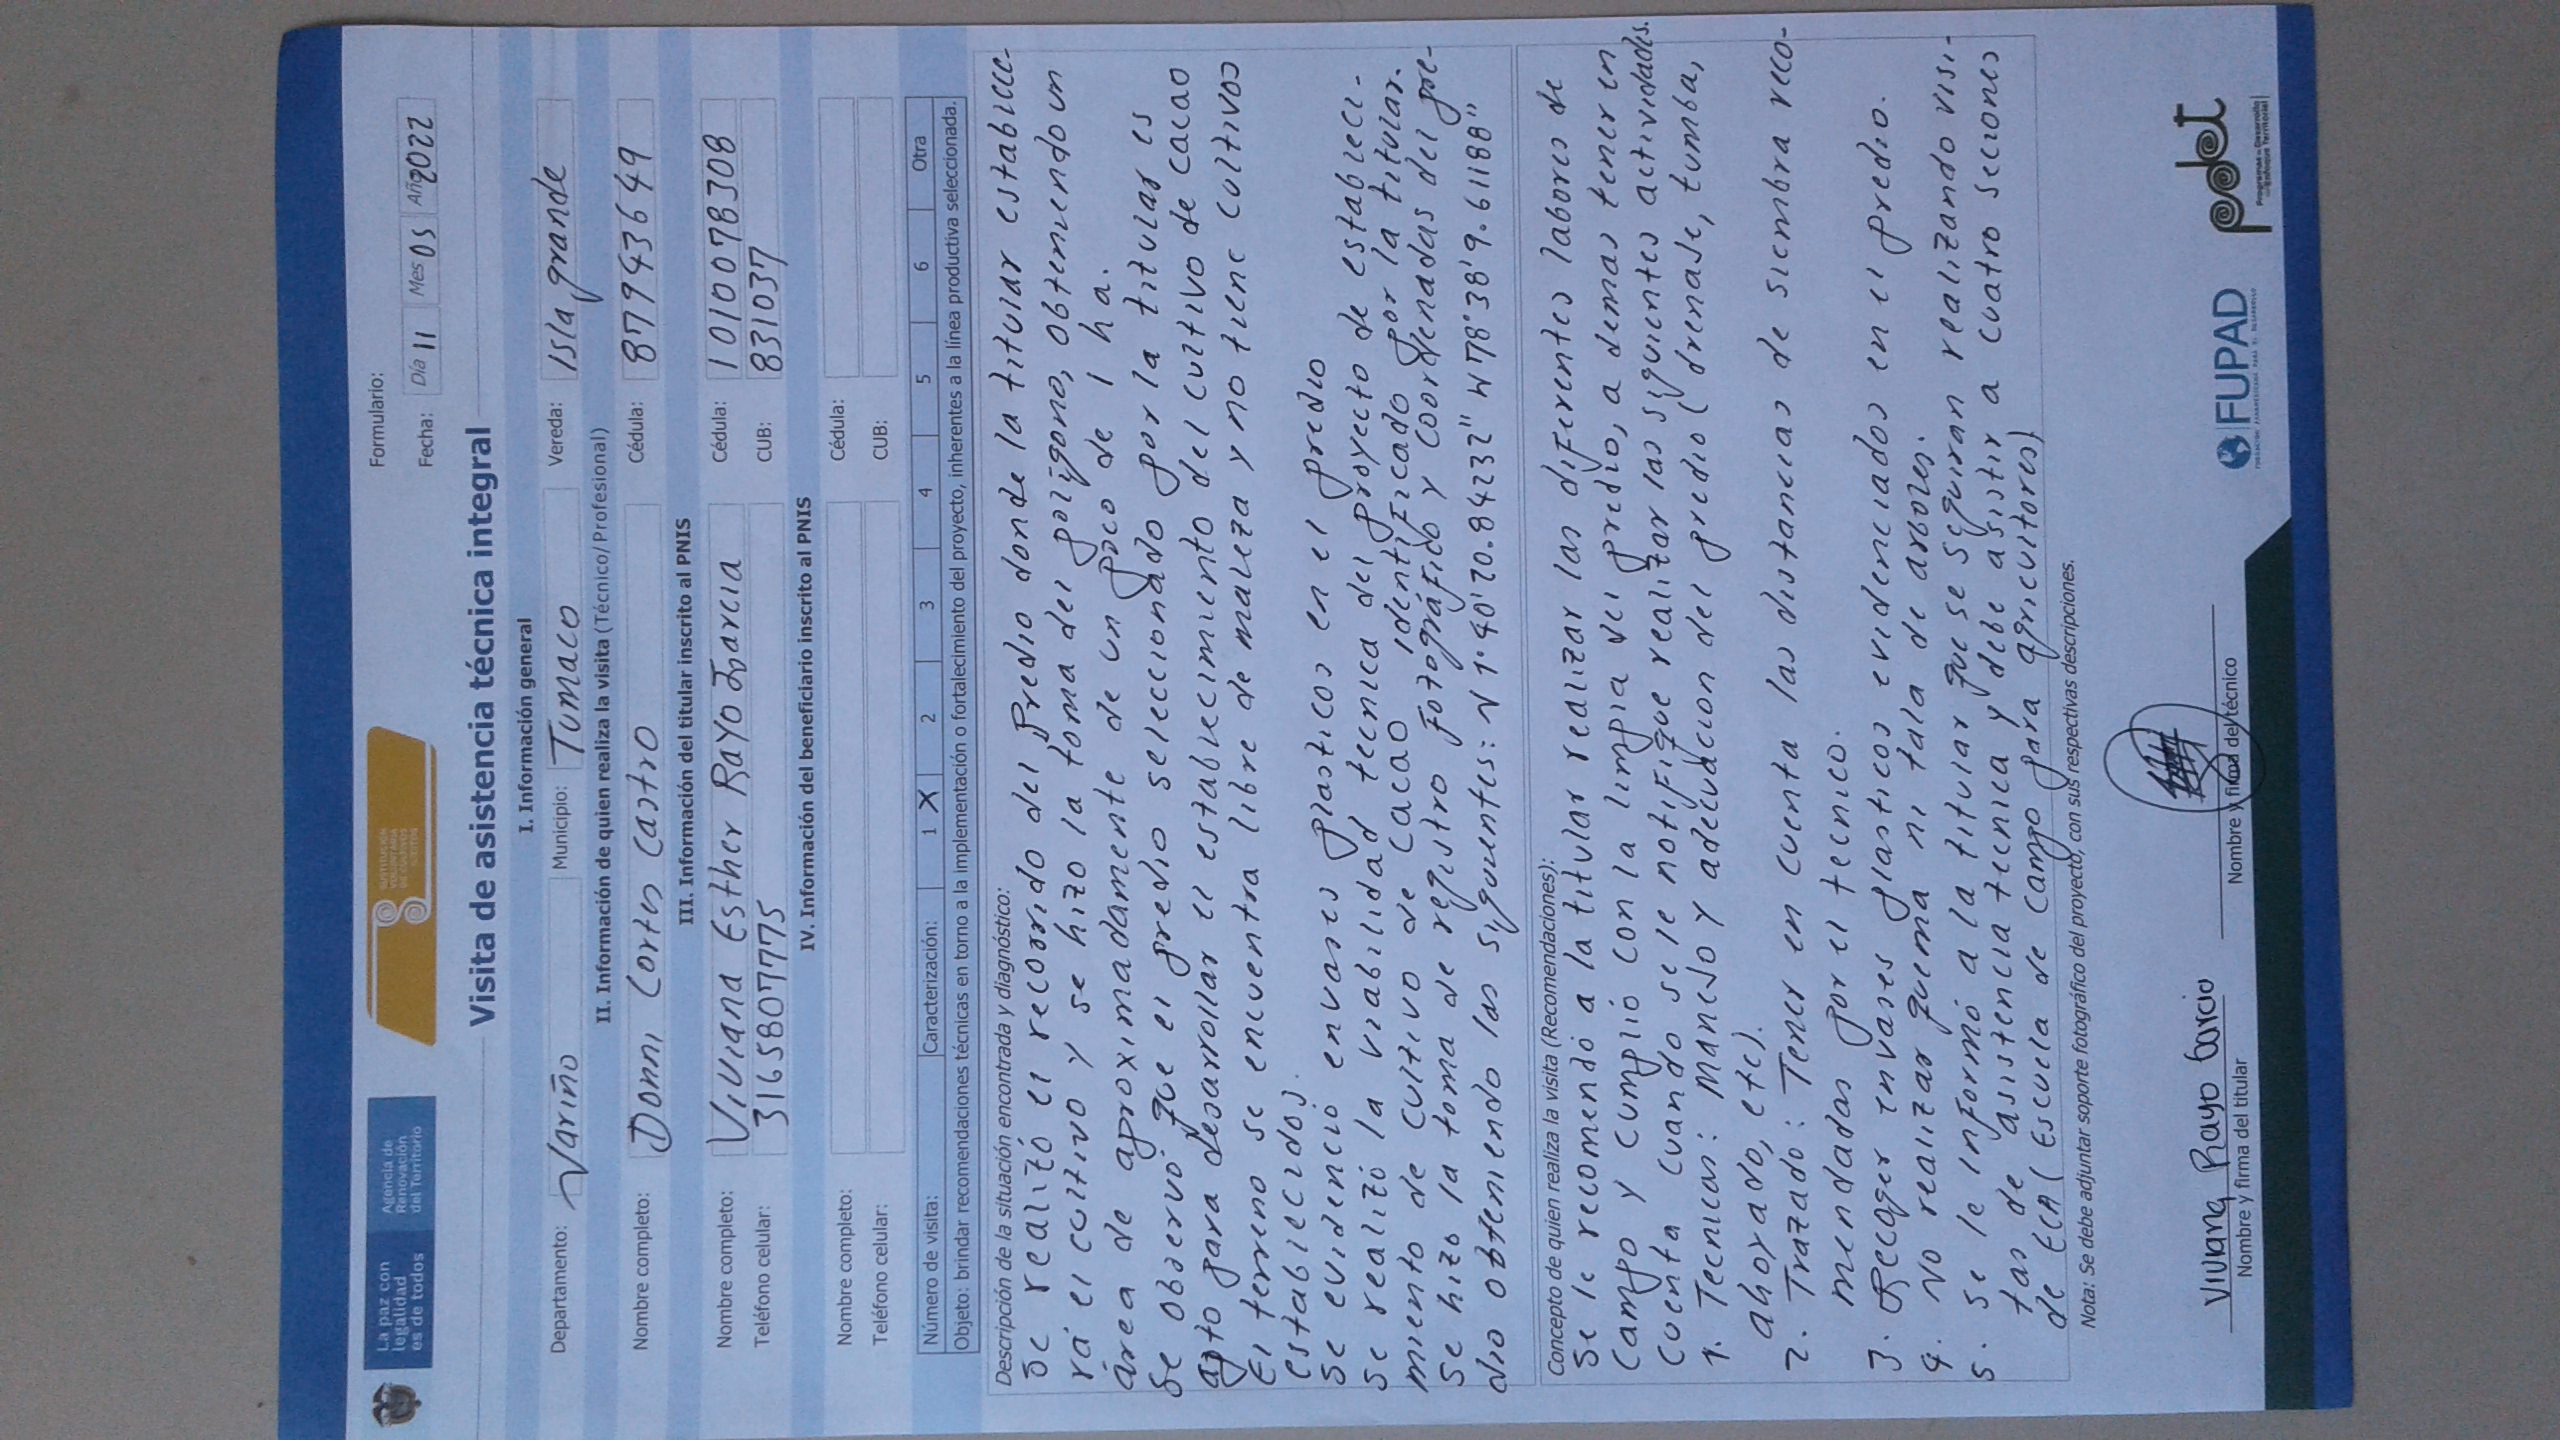 La paz con
legalidad
es de todos
Agencia de
Renovación
del Territorio
SUSTITUCIÓN
VOLUNTARIA
DE CULTIVOS
ILÍCITOS
Formulario:
Fecha: Día 11 Mes 05 Año 2022
Visita de asistencia técnica integral
I. Información general
Departamento: Nariño Municipio: Tumaco Vereda: Isla grande
II. Información de quien realiza la visita (Técnico/Profesional)
Nombre completo: Donni Cortes Castro Cédula: 87943649
III. Información del titular inscrito al PNIS
Nombre completo: Viviana Esther Rayo Garcia Cédula: 1010078308
Teléfono celular: 3165807775 CUB: 831037
IV. Información del beneficiario inscrito al PNIS
Nombre completo: Cédula:
Teléfono celular: CUB:
Número de visita: Caracterización: 1 X 2 3 4 5 6 Otra
Objeto: brindar recomendaciones técnicas en torno a la implementación o fortalecimiento del proyecto, inherentes a la línea productiva seleccionada.
Descripción de la situación encontrada y diagnóstico:
Se realizó el recorrido del Predio donde la titular establece-
rá el cultivo y se hizo la toma del polígono, obteniendo un
área de aproximadamente de un poco de 1 ha.
Se observó que el predio seleccionado por la titular es
apto para desarrollar el establecimiento del cultivo de cacao
El terreno se encuentra libre de maleza y no tiene cultivos
establecidos.
Se evidenció envases plasticos en el predio
Se realizó la viabilidad tecnica del proyecto de estableci-
miento de cultivo de cacao identificado por la titular.
Se hizo la toma de registro fotográfico y coordenadas del pre-
dio obteniendo las siguientes: N 1°40'20.84232" W 78°38'9.61188"
Concepto de quien realiza la visita (Recomendaciones):
Se le recomendó a la titular realizar las diferentes labores de
campo y cumplió con la limpia del predio, a demas tener en
cuenta cuando se le notifique realizar las siguientes actividades.
1. Tecnicas: Manejo y adecuacion del predio (drenaje, tumba,
ahoyado, etc).
2. Trazado: Tener en cuenta las distancias de siembra reco-
mendadas por el tecnico.
3. Recoger envases plasticos evidenciados en el predio.
4. No realizar quema ni tala de arboles.
5. se le informó a la titular que se seguiran realizando visi-
tas de asistencia tecnica y debe asistir a cuatro secciones
de ECA (Escuela de campo para agricultores)
Nota: Se debe adjuntar soporte fotográfico del proyecto, con sus respectivas descripciones.
Viviana Rayo Garcia
Nombre y firma del titular
Nombre y firma del técnico
FUPAD
FUNDACIÓN PANAMERICANA PARA EL DESARROLLO
pdet
Programas de Desarrollo
con Enfoque Territorial